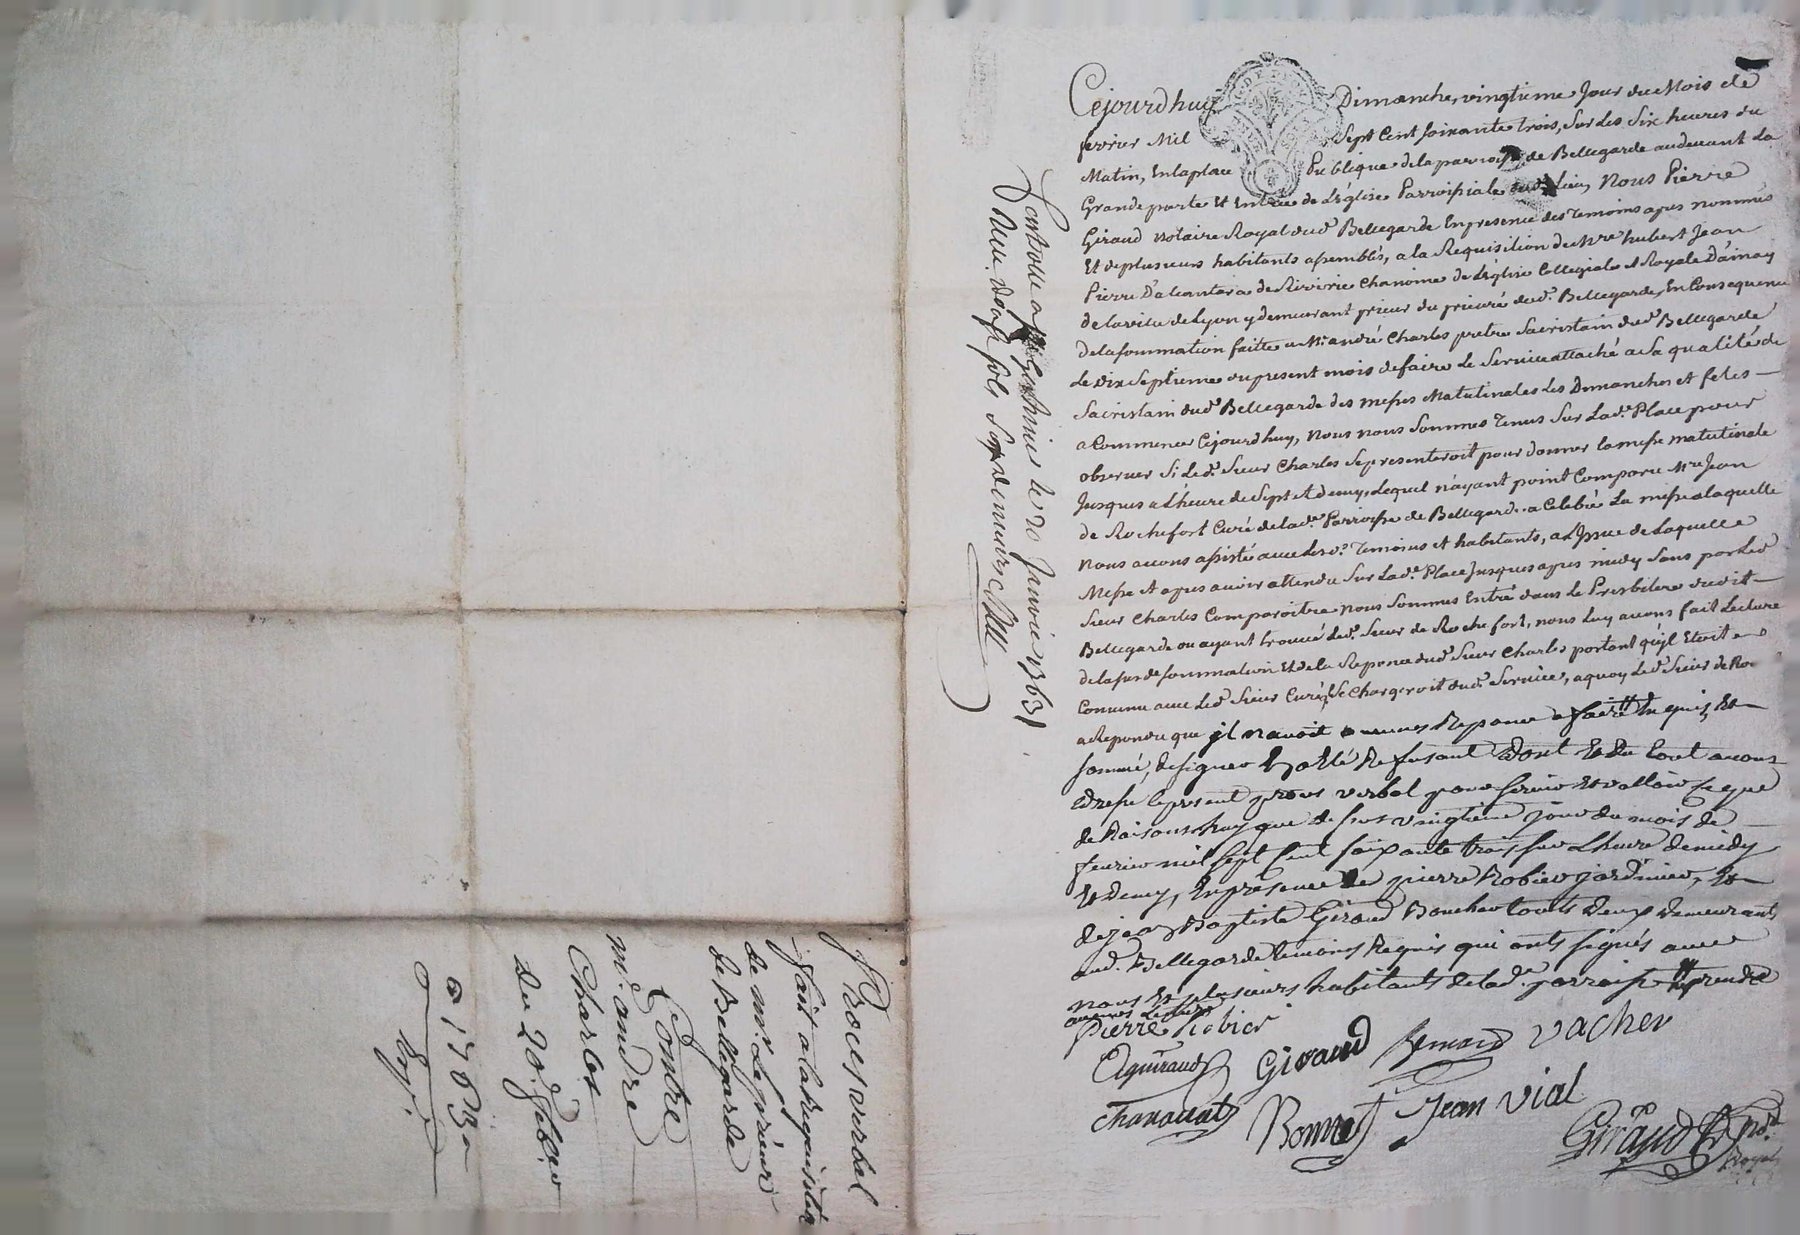 Cejourdhuy Dimanche, vingtieme Jour du Mois de
fevrier Mil Sept Cent soixante trois, Sur Les Six heures du
Matin, En la place Publique de la parroisse de Bellegarde audevant La
Grande porte Et Entrée de L'église Parroissiale dud. lieu, Nous Pierre
Giraud Notaire Royal dud. Bellegarde En presence des Temoins apres nommés
Et de plusieurs habitants assemblés, a la Requisition de Mre hubert Jean
Pierre D'alcantara de Riverie Chanoine de L'église Collegiale et Royale D'ainay
de la ville de Lyon y demeurant prieur du prieuré dud. Bellegarde, En Consequence
de la sommation faitte a Mr. andré Charles pretre Sacristain dud. Bellegarde
Le dix Septieme du present mois de faire Le Service attaché a Sa qualité de
Sacristain dud. Bellegarde des messes Matutinales Les Dimanches et fetes
a Commencer Cejourdhuy, Nous nous Sommes Tenus Sur Lad. Place pour
observer Si Led. Sieur Charles Se presenteroit pour donner la messe matutinale
Jusques a L'heure de Sept et demy, Lequel n'ayant point Comparu Mre Jean
de Rochefort Curé de Lad. Parroisse de Bellegarde a Celebré La messe a laquelle
Nous avons assisté avec Lesd. Temoins et habitants, a L'Issue de Laquelle
Messe et apres avoir attendu Sur Lad. Place Jusques apres midy Sans que led.
Sieur Charles Comparoitre Nous Sommes Entré dans Le Presbitere dudit
Bellegarde ou ayant trouvé Led. Sieur de Rochefort, nous Luy avons fait Lecture
de la susd. sommation Et de la Reponce dud. Sieur Charles portant qu'il Etoit
Convenu avec Led. Sieur Curé, Se Chargeroit dud. Service, a quoy Led. Sieur de Ro
a Repondu que il navoit aucunes Reponce a faire Requis, Et
sommé, de signer Et a Eté Refusant Dont Et Du tout avons
Dressé le present proces verbal pour servir Et valloir ce que
de Raison a huy que dessus vingtieme jour du mois de
fevrier mil sept cent soixante trois sur Lheure de midy
Et demy, En presence de pierre Robier jardinier, Et
de jean Baptiste Giraud Boucher touts deux demeurants
aud. Bellegarde temoins Requis qui onts signés avec
nous Et plusieurs habitants de lad. parroisse
Pierre Robier
Giraud Bernard Vacher
Bonnet Jean Vial
Giraud Nore
Royal
Controllé a le 20 Janvier 1763
Reçu douze sols six deniers
Proces verbal
fait a la requisition
de mr. Le prieur
de Bellegarde
Contre
mr. andré
Charles
du 20e. febvrier
1763